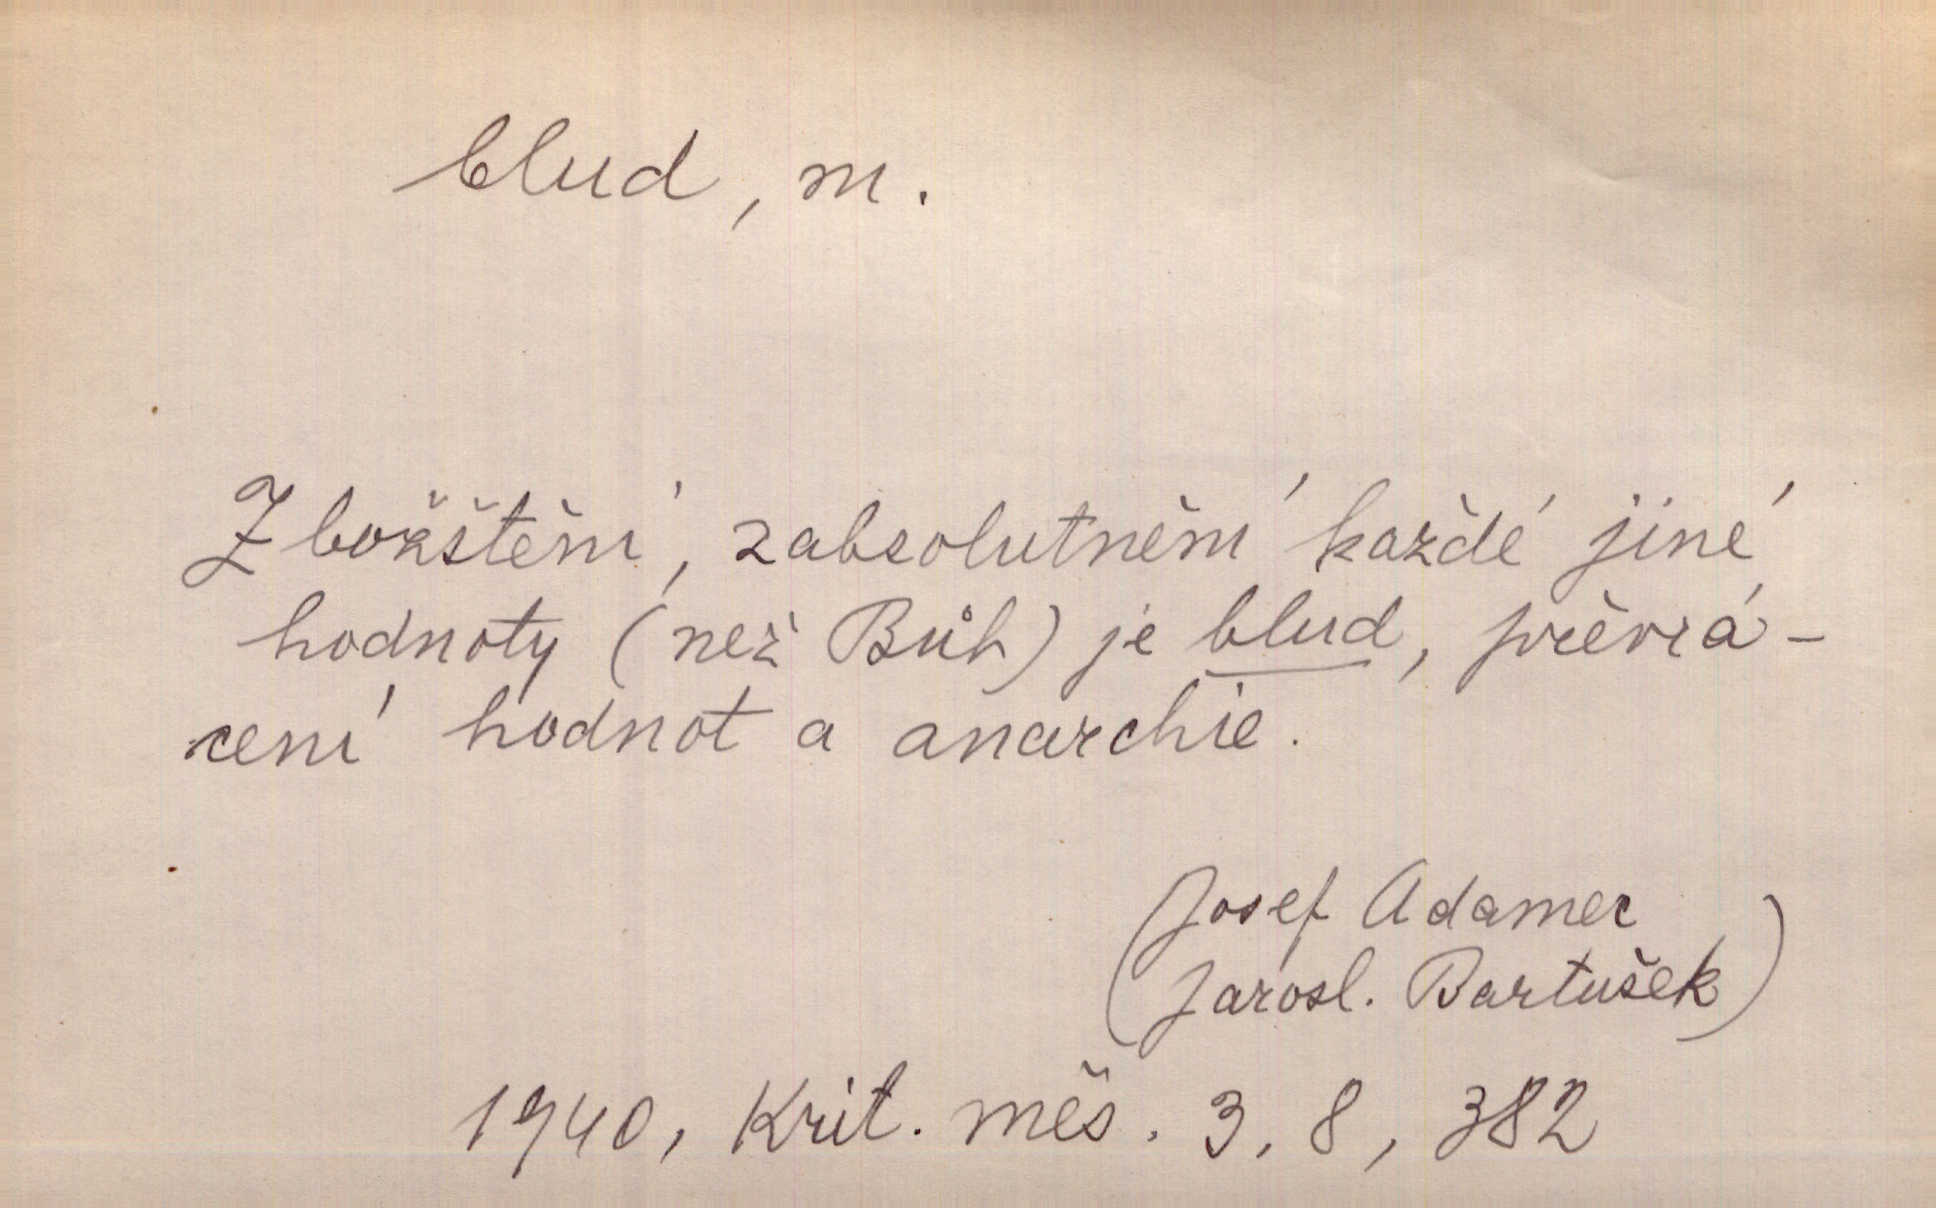 blud, m.
Zbožštění, zabsolutnění každé jiné
hodnoty (než Bůh) je blud, převrá-
cení hodnot a anarchie.
(Josef Adamec
Jarosl. Bartušek)
1940, Krit. měs. 3, 8, 382